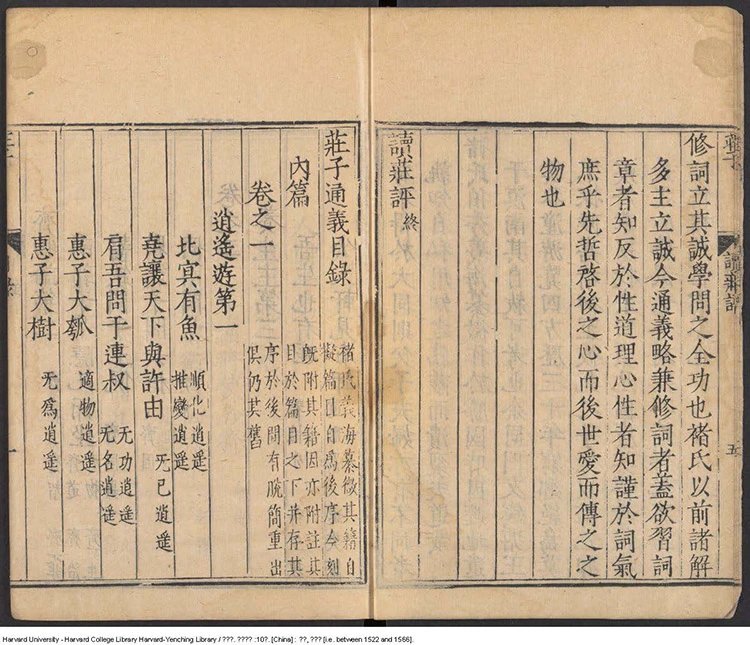 修詞立其誠學問之全功也褚氏以前諸解
多主立誠今通義略兼修詞者蓋欲習詞
章者知反於性道理心性者知謹於詞氣
庶乎先哲啓後之心而後世愛而傳之之
物也
讀莊評終
讀莊評
五
莊子通義目錄
內篇
褚氏義海纂微其籍自
擬篇目自爲後序今刻
旣附其籍因亦附註其
目於篇目之下并存其
序於後間有脫簡重出
俱仍其舊
卷之一
逍遙遊第一
北冥有魚
順化逍遙
推變逍遙
堯讓天下與許由
无已逍遙
肩吾問于連叔
无功逍遙
无名逍遙
惠子大瓠
適物逍遙
惠子大樹
无爲逍遙
一
Harvard University - Harvard College Library Harvard-Yenching Library / ???. ???? :10?. [China] : ??, ??? [i.e. between 1522 and 1566].